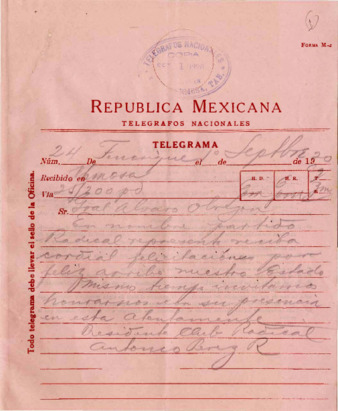 FORMA M-2
TELEGRAFOS NACIONALES
REPUBLICA MEXICANA
TELEGRAFOS NACIONALES
TELEGRAMA
Núm. 24 De el de Septbre de 1920
Recibido en
Vía 25/200 pd
H. D. H. R.
Sr. Gral Alvaro Obregon
En nombre partido
Radical represento reciba
cordial felicitaciones por
feliz arribo nuestro Estado
mismo tiempo invitamos
honrarnos con su presencia
en esta Atentamente
Presidente Club Radical
Antonio R
Todo telegrama debe llevar el sello de la Oficina.